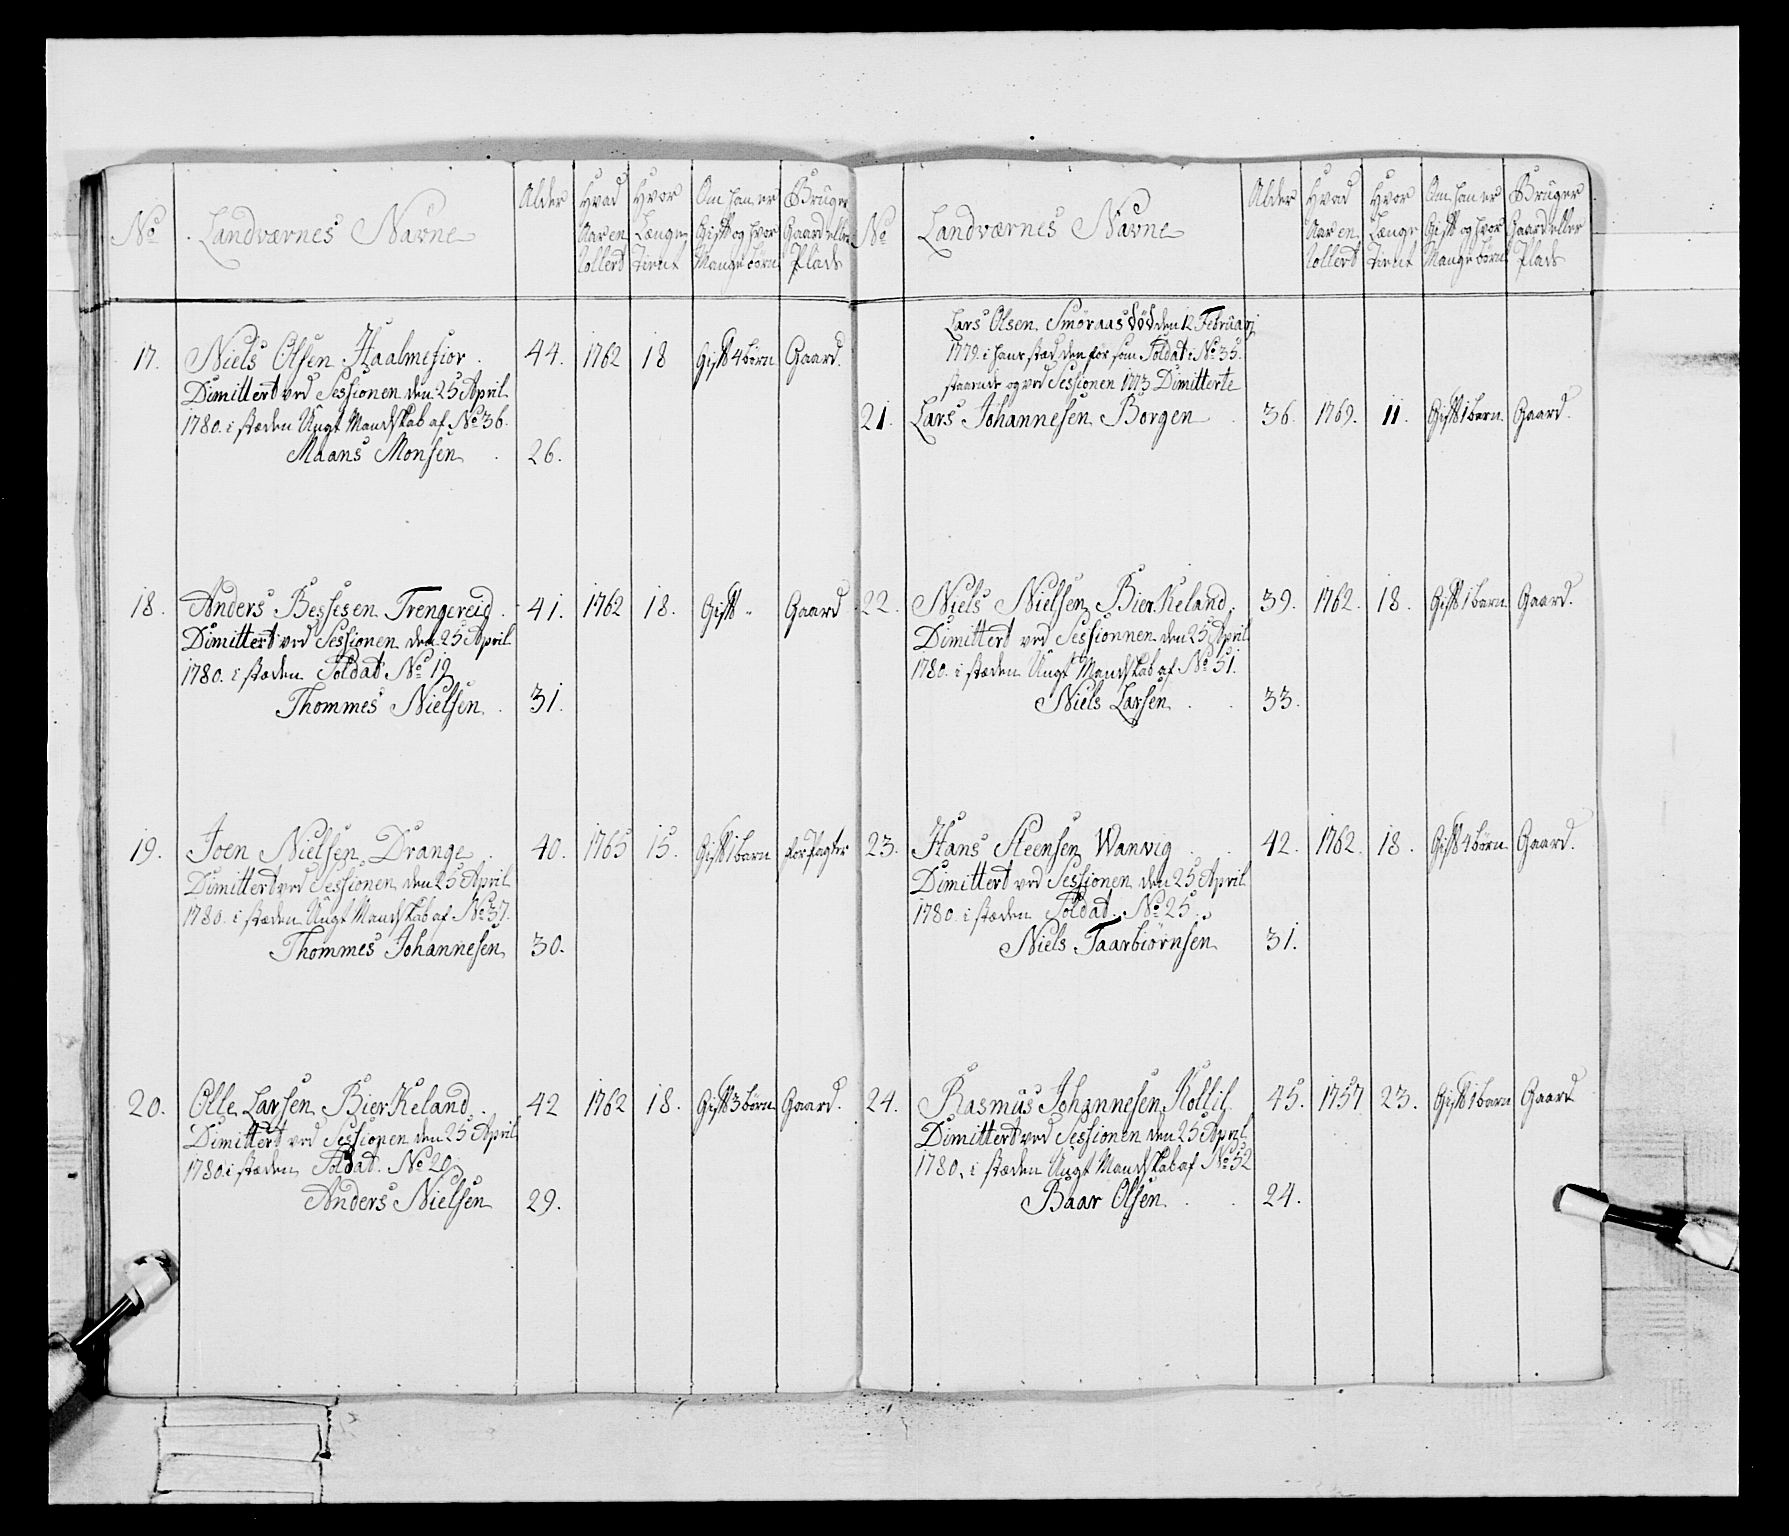 No
Landværnes Navne
Alder
Hvad Aar en Rollert
Hvor Længe Tient
Om han er Gift og hvor Mange børn
Bruger Gaard eller Plads
17. Niels Olsen Haalmefior 44. 1762 18 Gift 4 børn Gaard.
Dimittert ved Sessionen den 25 April
1780. i stæden Ungt Mandskab af No 36.
Maans Monsen 26.
18. Anders Bessesen Trengereid 41. 1762 18. Gift „ Gaard
Dimittert ved Sessionen den 25 April
1780. i stæden Soldat No 19
Thommes Nielsen 31.
19. Joen Nielsen Drange 40. 1765 15. Gift 1 barn forpagter
Dimittert ved Sessionen den 25 April
1780. i stæden Ungt Mandskab af No 37.
Thommes Johannesen 30.
20. Olle Larsen Bierkeland 42 1762 18. Gift 3 børn Gaard.
Dimittert ved Sessionen den 25 April
1780. i stæden Soldat No 20.
Anders Nielsen 29.
No
Landværnes Navne
Alder
Hvad Aar en Rollert
Hvor Længe Tient
Om han er Gift og hvor Mange børn
Bruger Gaard eller Plads
Lars Olsen Smøraas død den 12 Februarj
1779. i hans stæd den for som Soldat No 35.
staaende og ved Sessionen 1773 Dimitterte
21. Lars Johannesen Borgen 36. 1769. 11. Gift 1 barn Gaard.
22. Niels Nielsen Bierkeland. 39. 1762. 18. Gift 1 barn Gaard.
Dimittert ved Sessionnen den 25 April
1780. i stæden Ungt Mandskab af No 51.
Niels Larsen 33.
23. Hans Steensen Wanvig 42. 1762. 18. Gift 4 børn Gaard.
Dimittert ved Sessionen den 25 April
1780. i stæden Soldat No 25.
Niels Taarbiørnsen 31.
24. Rasmus Johannesen Kollil 45. 1757 23. Gift 1 barn Gaard
Dimittert ved Sessionen den 25 April
1780. i stæden Ungt Mandskab af No 52
Baar Olsen 24.